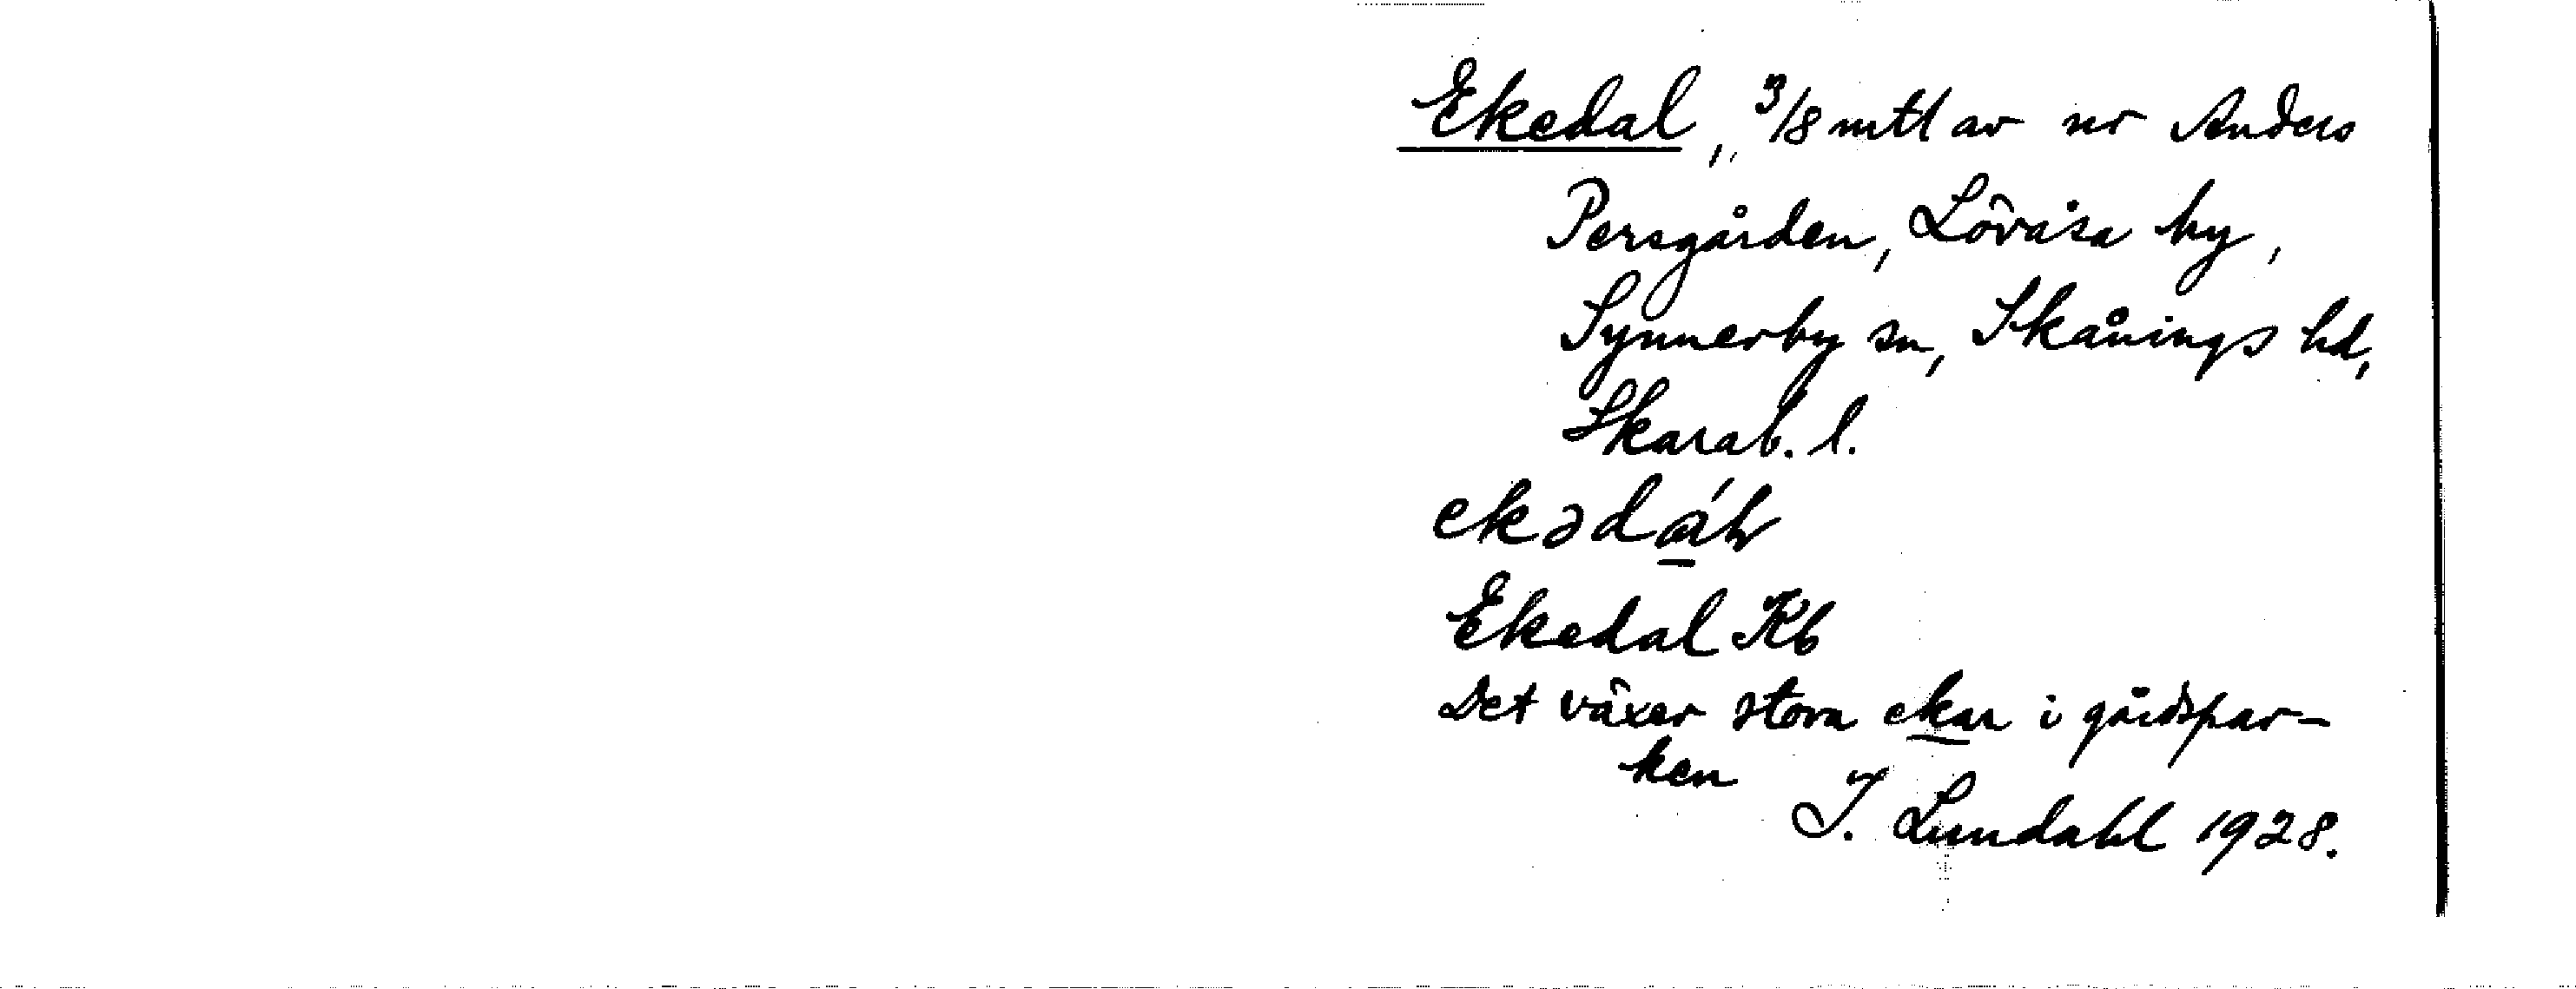 Ekedal, 3/8 mtl av nr Anders
Persgården, Lövåsa by,
Synnerby sn, Skånings hd,
Skarab. l.
ekədáh
Ekedal Kb
Det växer stora ekar i gårdspar-
ken
I. Lundahl 1928.